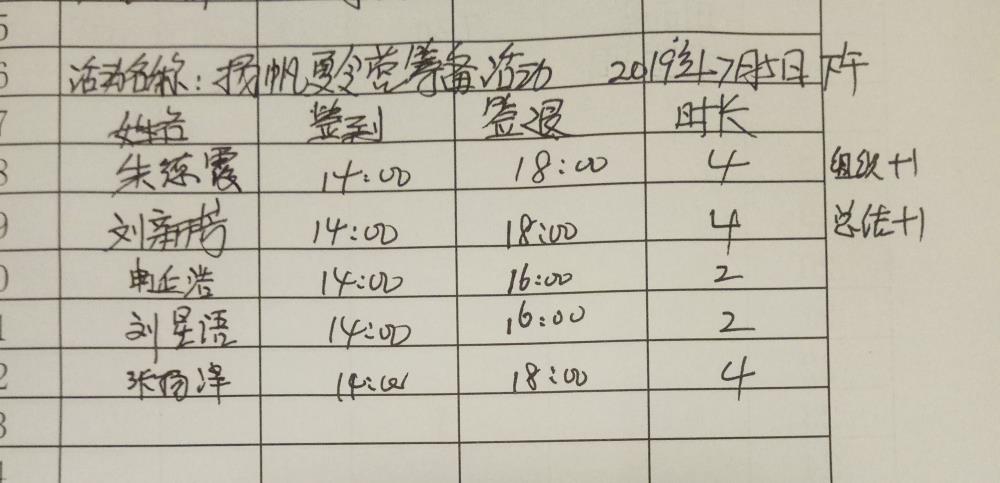 5
6 活动名称：扬帆夏令营筹备活动 2019年7月5日 下午
7 姓名 签到 签退 时长
8 朱练霞 14:00 18:00 4 组织+1
9 刘新 14:00 18:00 4 总结+1
0 申正浩 14:00 16:00 2
1 刘星语 14:00 16:00 2
2 张扬泽 14:00 18:00 4
3